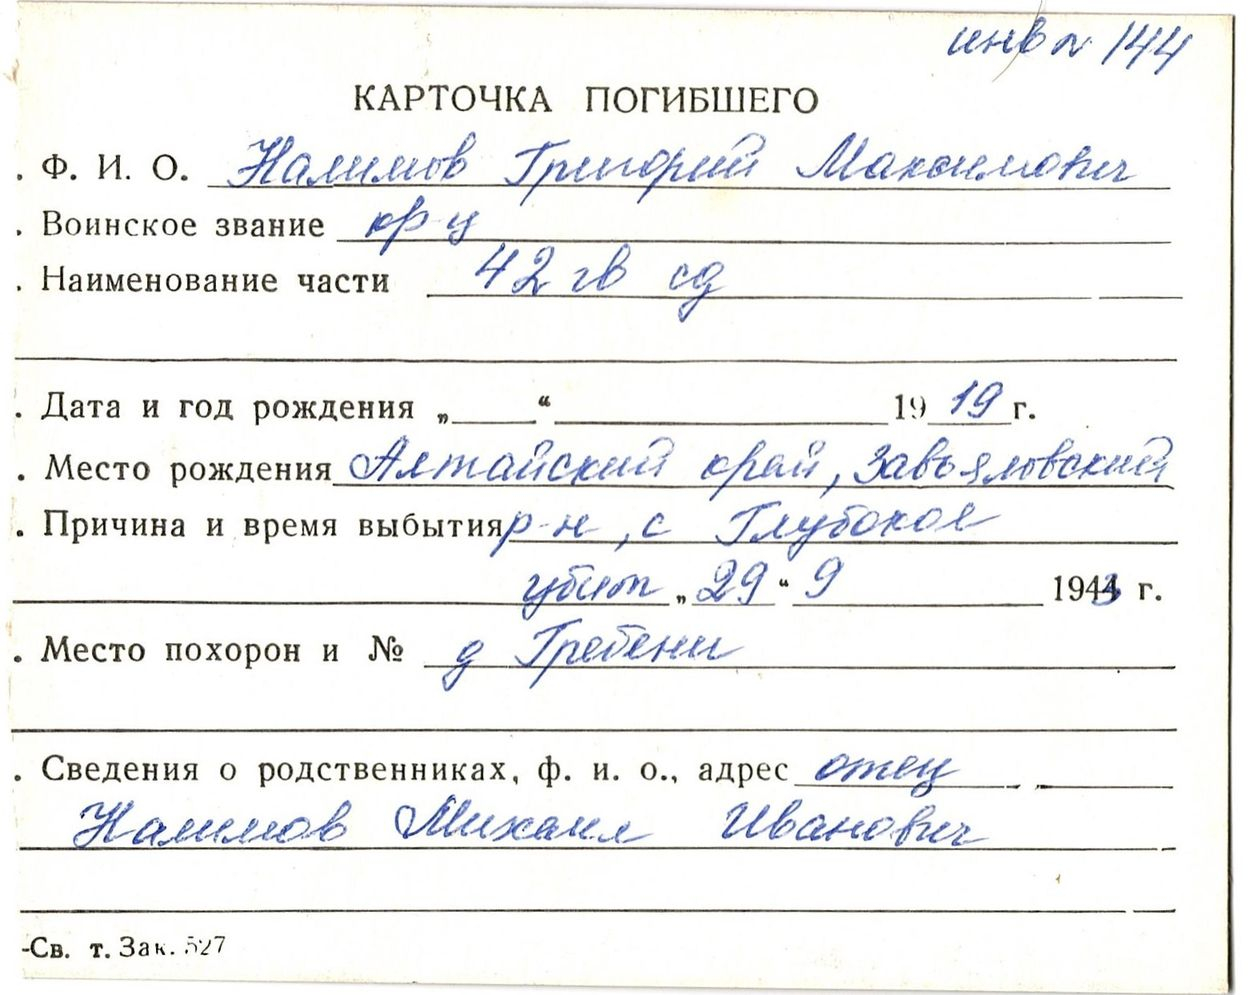 инв № 144
КАРТОЧКА ПОГИБШЕГО
. Ф. И. О. Налимов Григорий Максимович
. Воинское звание кр-ц
. Наименование части 42 гв сд
. Дата и год рождения „ “ 1919 г.
. Место рождения Алтайский край, Завьяловский
. Причина и время выбытия р-н, с Глубокое
убит „29“ 9 1943 г.
. Место похорон и № д Гребени
. Сведения о родственниках, ф. и. о., адрес отец
Налимов Михаил Иванович
-Св. т. Зак. 527